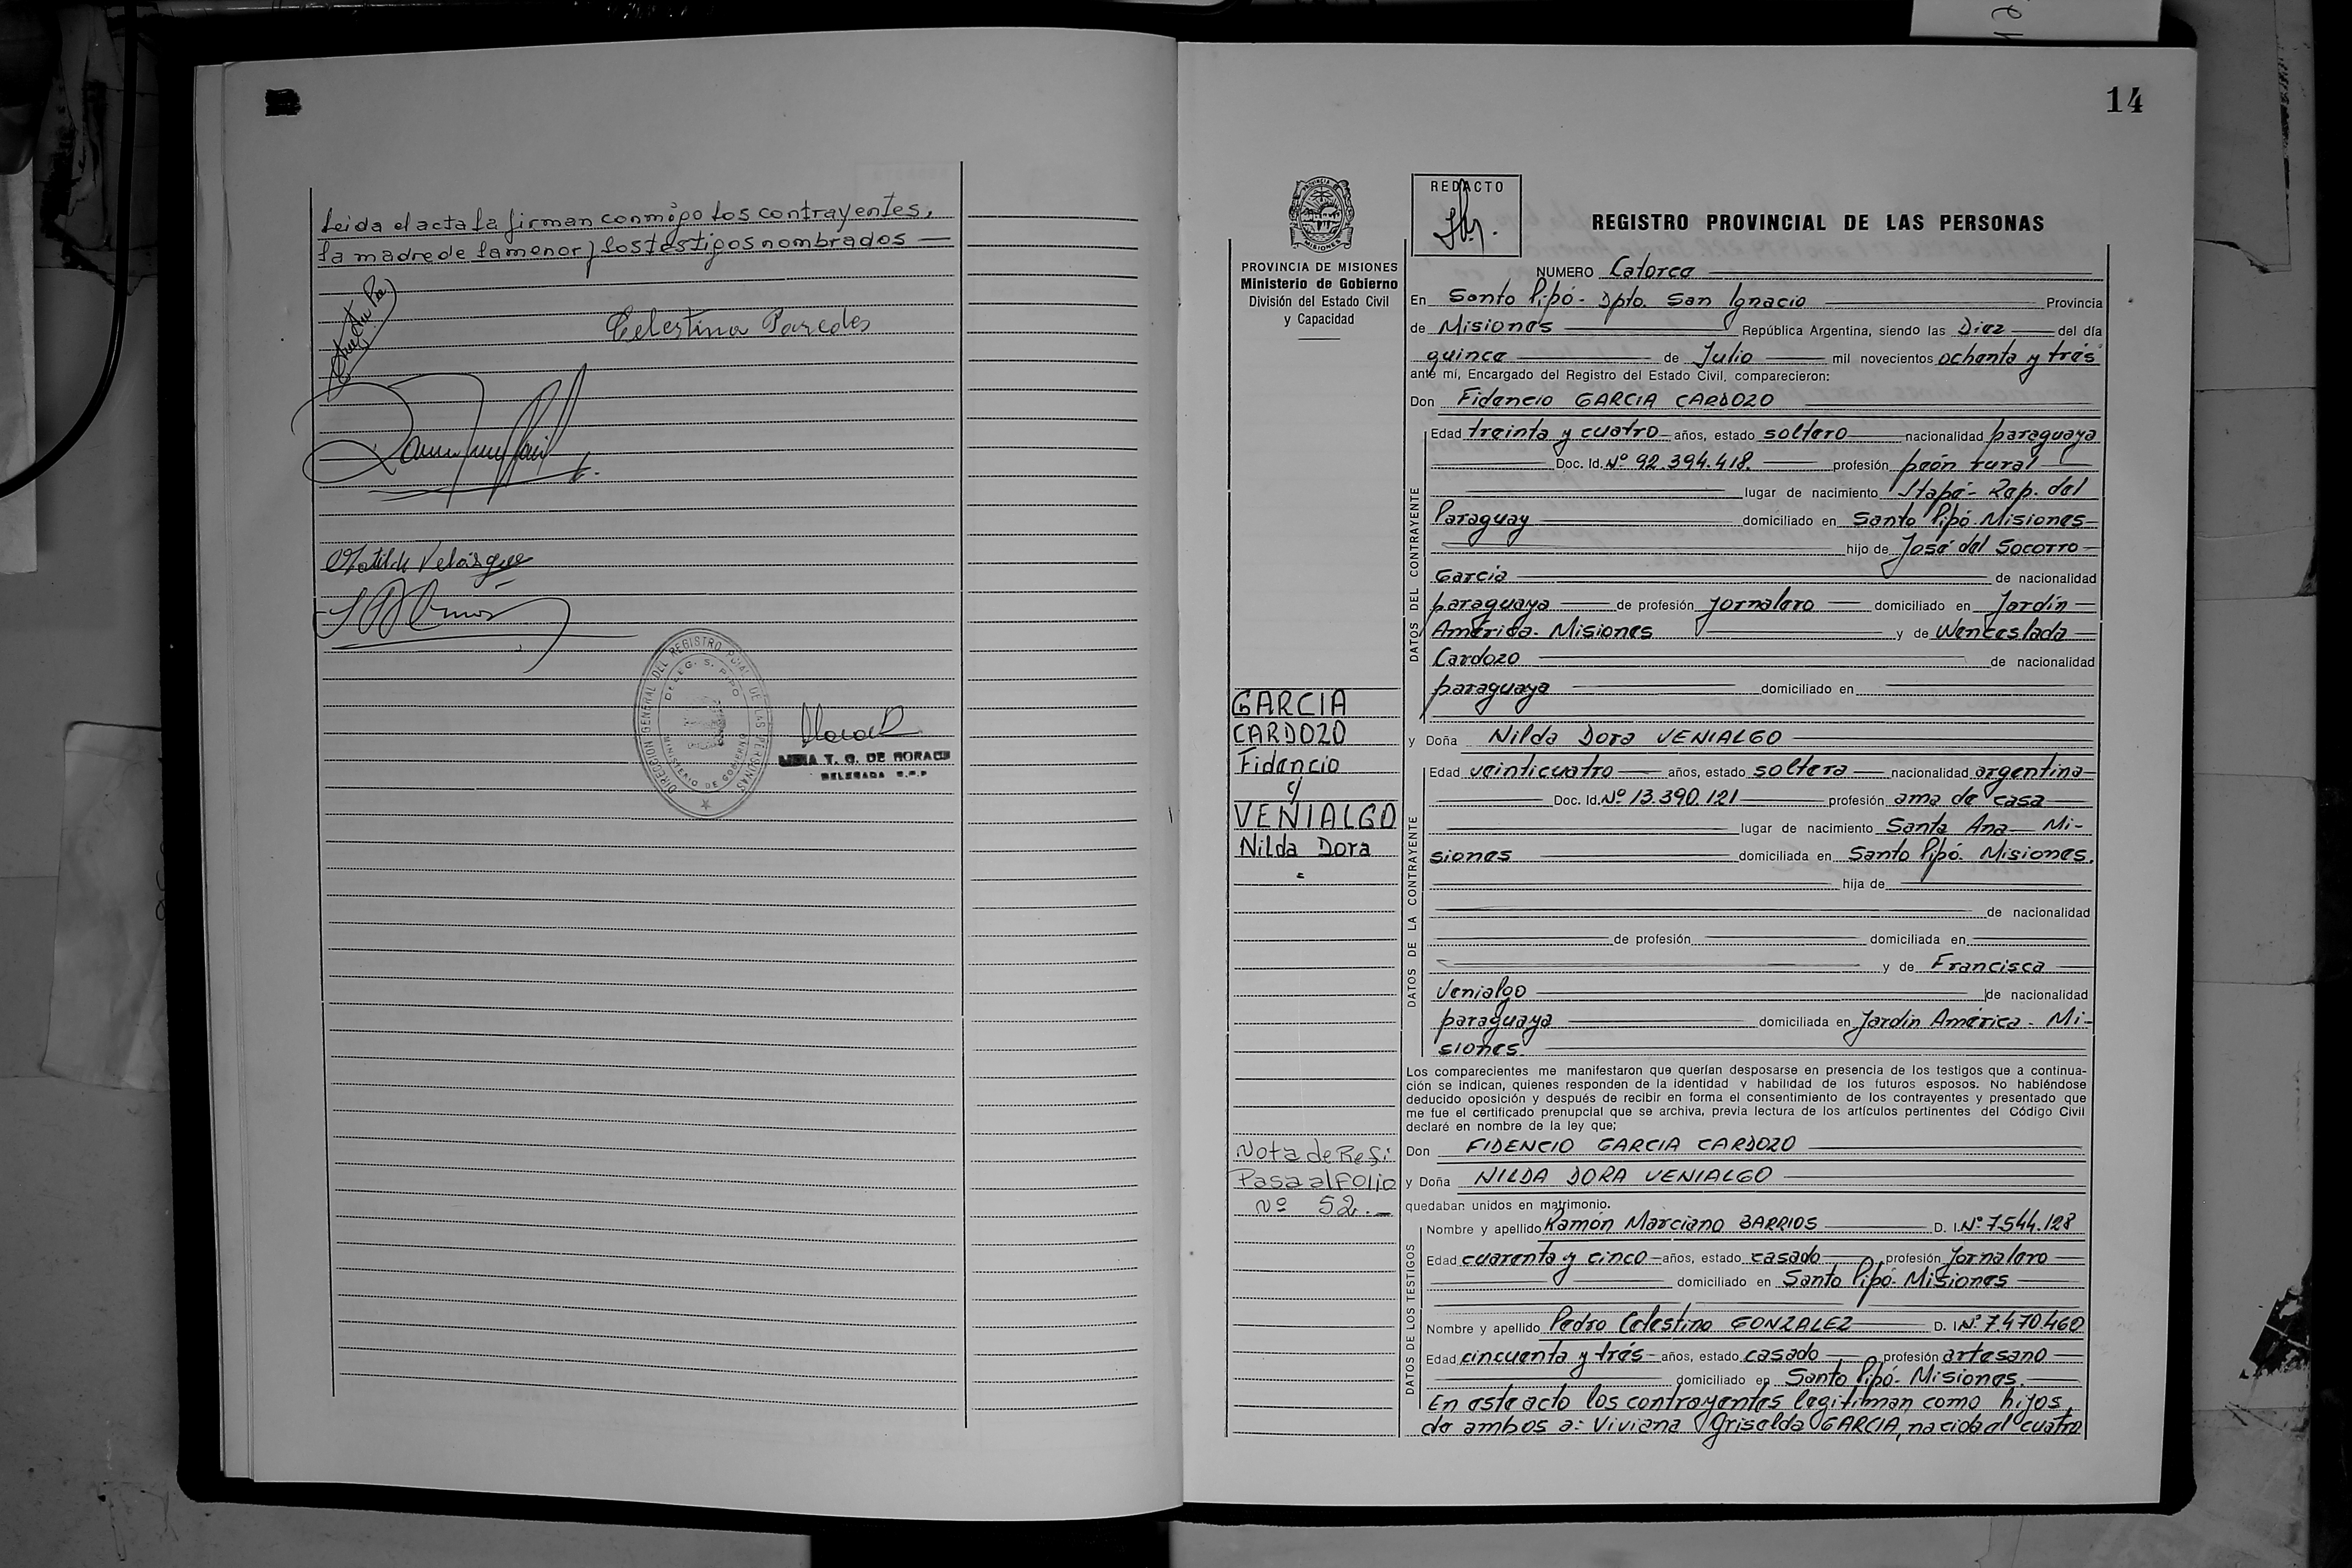 Leida el acta la firman conmigo los contrayentes,
la madre de la menor y los testigos nombrados
Celestina Paredes
Matilde Velázquez
DIRECCION GENERAL DEL REGISTRO PCIAL. DE LAS PERSONAS
DELEG. S. PIPO
MINISTERIO DE GOBIERNO
DE MORACE
DELEGADA
14
PROVINCIA DE MISIONES
Ministerio de Gobierno
División del Estado Civil
y Capacidad
REDACTO
REGISTRO PROVINCIAL DE LAS PERSONAS
NUMERO Catorce
En Santo Pipó - Dpto. San Ignacio Provincia
de Misiones República Argentina, siendo las Diez del día
quince de Julio mil novecientos ochenta y trés
ante mí, Encargado del Registro del Estado Civil, comparecieron:
Don Fidencio GARCIA CARDOZO
DATOS DEL CONTRAYENTE
Edad treinta y cuatro años, estado soltero nacionalidad paraguaya
Doc. Id. Nº 92.394.418. profesión peón rural
lugar de nacimiento Itapé - Rep. del
Paraguay domiciliado en Santo Pipó - Misiones
hijo de José del Socorro
García de nacionalidad
paraguaya de profesión jornalero domiciliado en Jardín
América - Misiones y de Wenceslada
Cardozo de nacionalidad
paraguaya domiciliado en
GARCIA
CARDOZO
Fidencio
c/
VENIALGO
Nilda Dora
y Doña Nilda Dora VENIALGO
DATOS DE LA CONTRAYENTE
Edad veinticuatro años, estado soltera nacionalidad argentina
Doc. Id. Nº 13.390.121 profesión ama de casa
lugar de nacimiento Santa Ana Mi-
siones domiciliada en Santo Pipó. Misiones.
hija de
de nacionalidad
de profesión domiciliada en
y de Francisca
Venialgo de nacionalidad
paraguaya domiciliada en Jardín América - Mi-
siones.
Los comparecientes me manifestaron que querían desposarse en presencia de los testigos que a continua-
ción se indican, quienes responden de la identidad y habilidad de los futuros esposos. No habiéndose
deducido oposición y después de recibir en forma el consentimiento de los contrayentes y presentado que
me fue el certificado prenupcial que se archiva, previa lectura de los artículos pertinentes del Código Civil
declaré en nombre de la ley que;
Don FIDENCIO GARCIA CARDOZO
y Doña NILDA DORA VENIALGO
quedaban unidos en matrimonio.
Nota de Refi
Pasa al Folio
Nº 52.-
DATOS DE LOS TESTIGOS
Nombre y apellido Ramón Marciano BARRIOS D. I. Nº 7.544.128
Edad cuarenta y cinco años, estado casado profesión jornalero
domiciliado en Santo Pipó - Misiones
Nombre y apellido Pedro Celestino GONZALEZ D. I. Nº 7.470.460
Edad cincuenta y trés años, estado casado profesión artesano
domiciliado en Santo Pipó - Misiones.
En este acto los contrayentes legitiman como hijos
de ambos a: Viviana Griselda GARCIA, nacida el cuatro